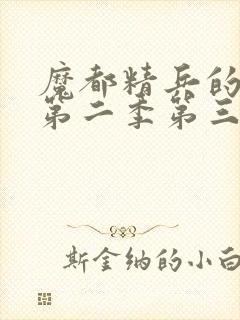 魔都精兵的
第二季第三
斯金纳的小白